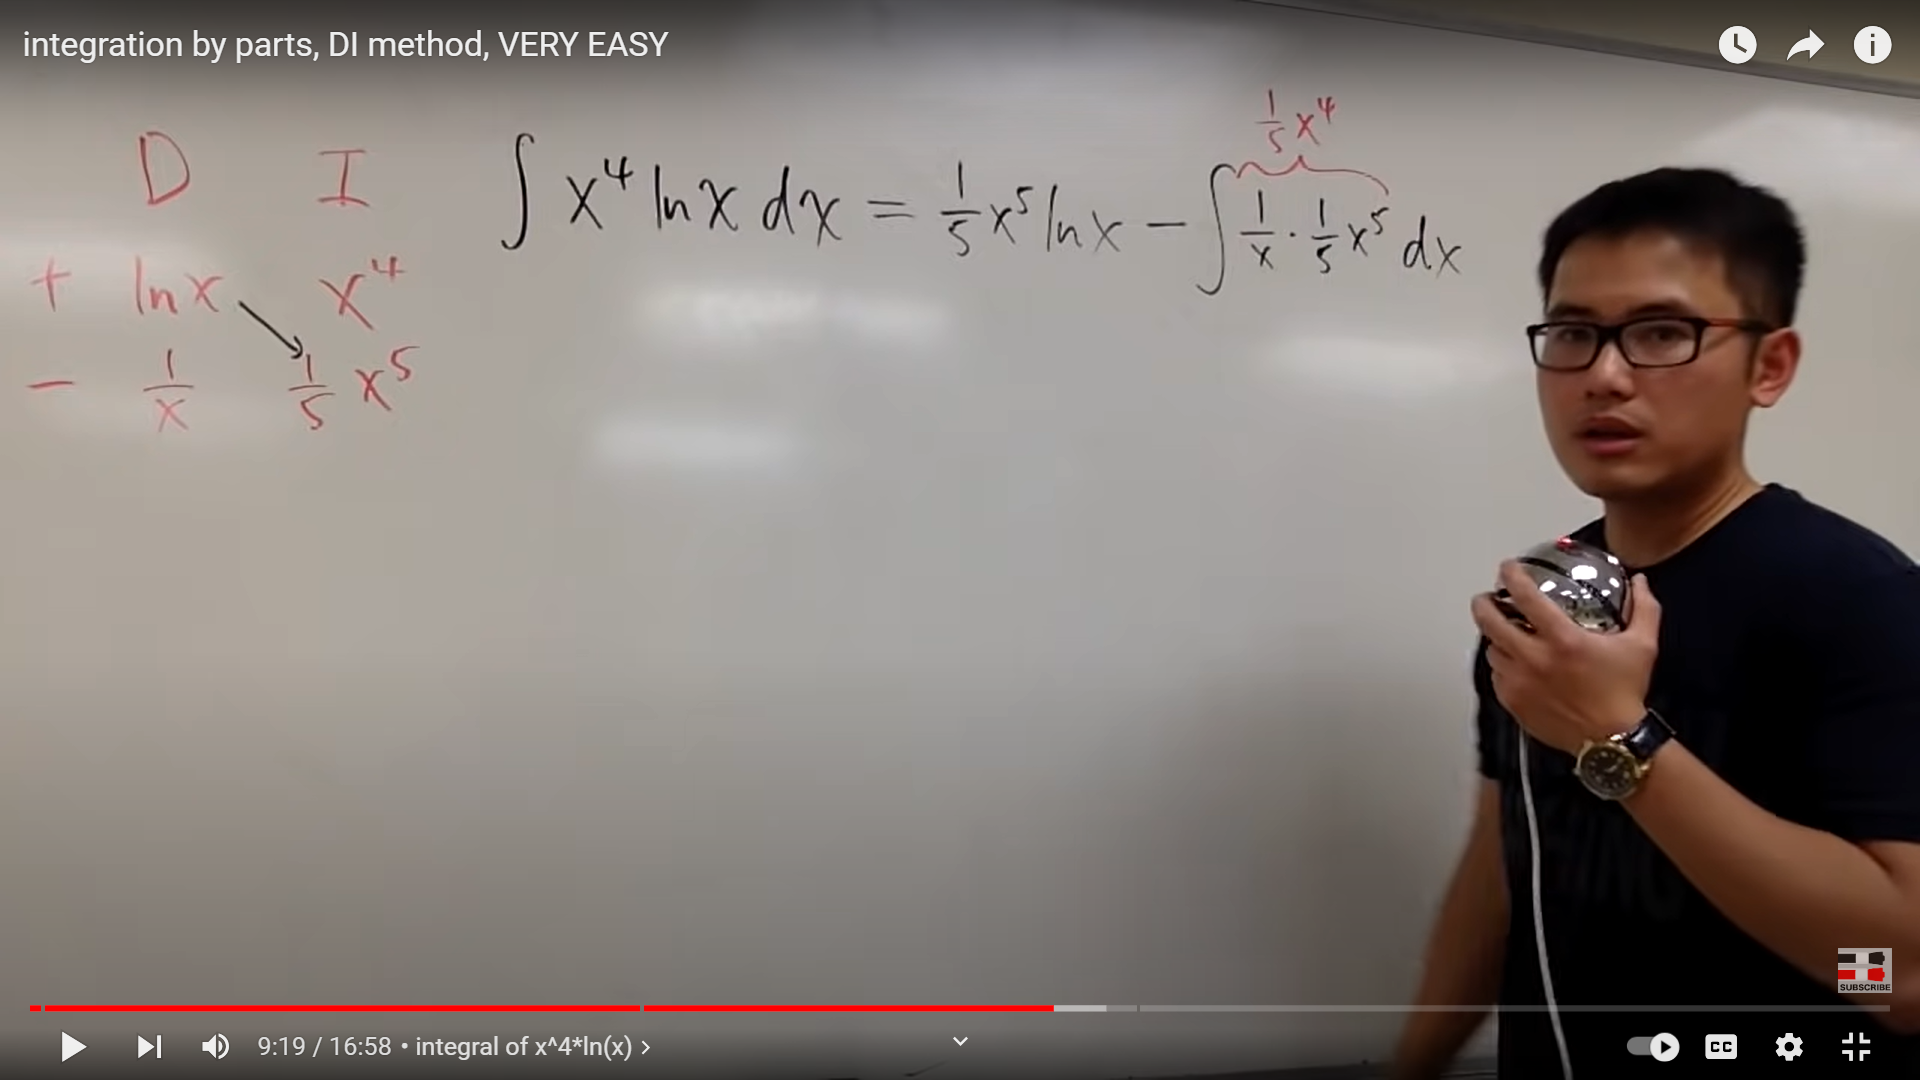 integration by parts, DI method, VERY EASY
D I
+ ln x x⁴
− 1/x 1/5 x⁵
1/5 x⁴
∫ x⁴ ln x dx = 1/5 x⁵ ln x − ∫ 1/x · 1/5 x⁵ dx
SUBSCRIBE
9:19 / 16:58 • integral of x^4*ln(x) >
CC